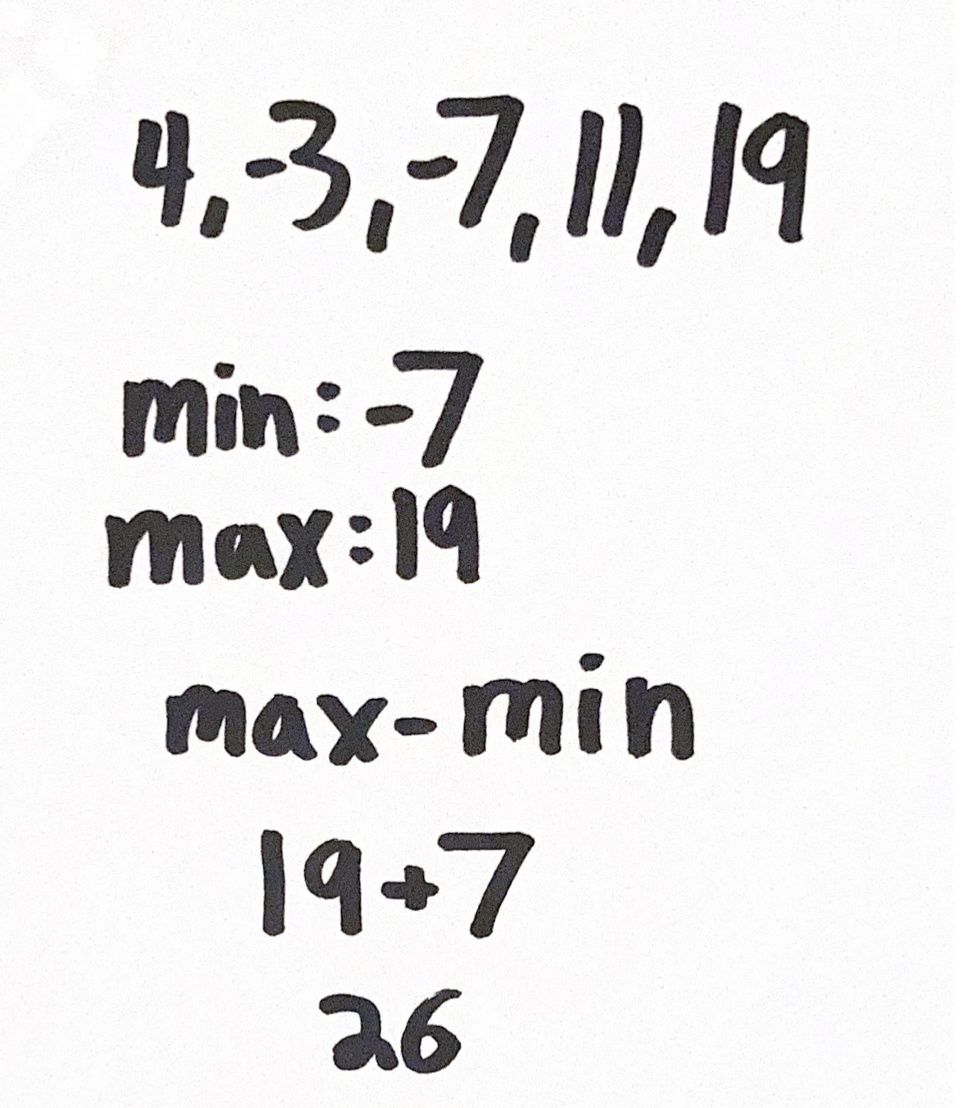 4, -3, -7, 11, 19
min: -7
max: 19
max - min
19 + 7
26